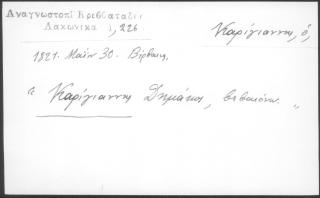 Αναγνωστοπ Κρεββαταδες
Λακωνικα 1,226
Καρίγιαννης, ὁ,
1821. Μαΐου 30. Βέρβαινα,
" Καρίγιαννης Δημάκης, βεβαιόνω. "